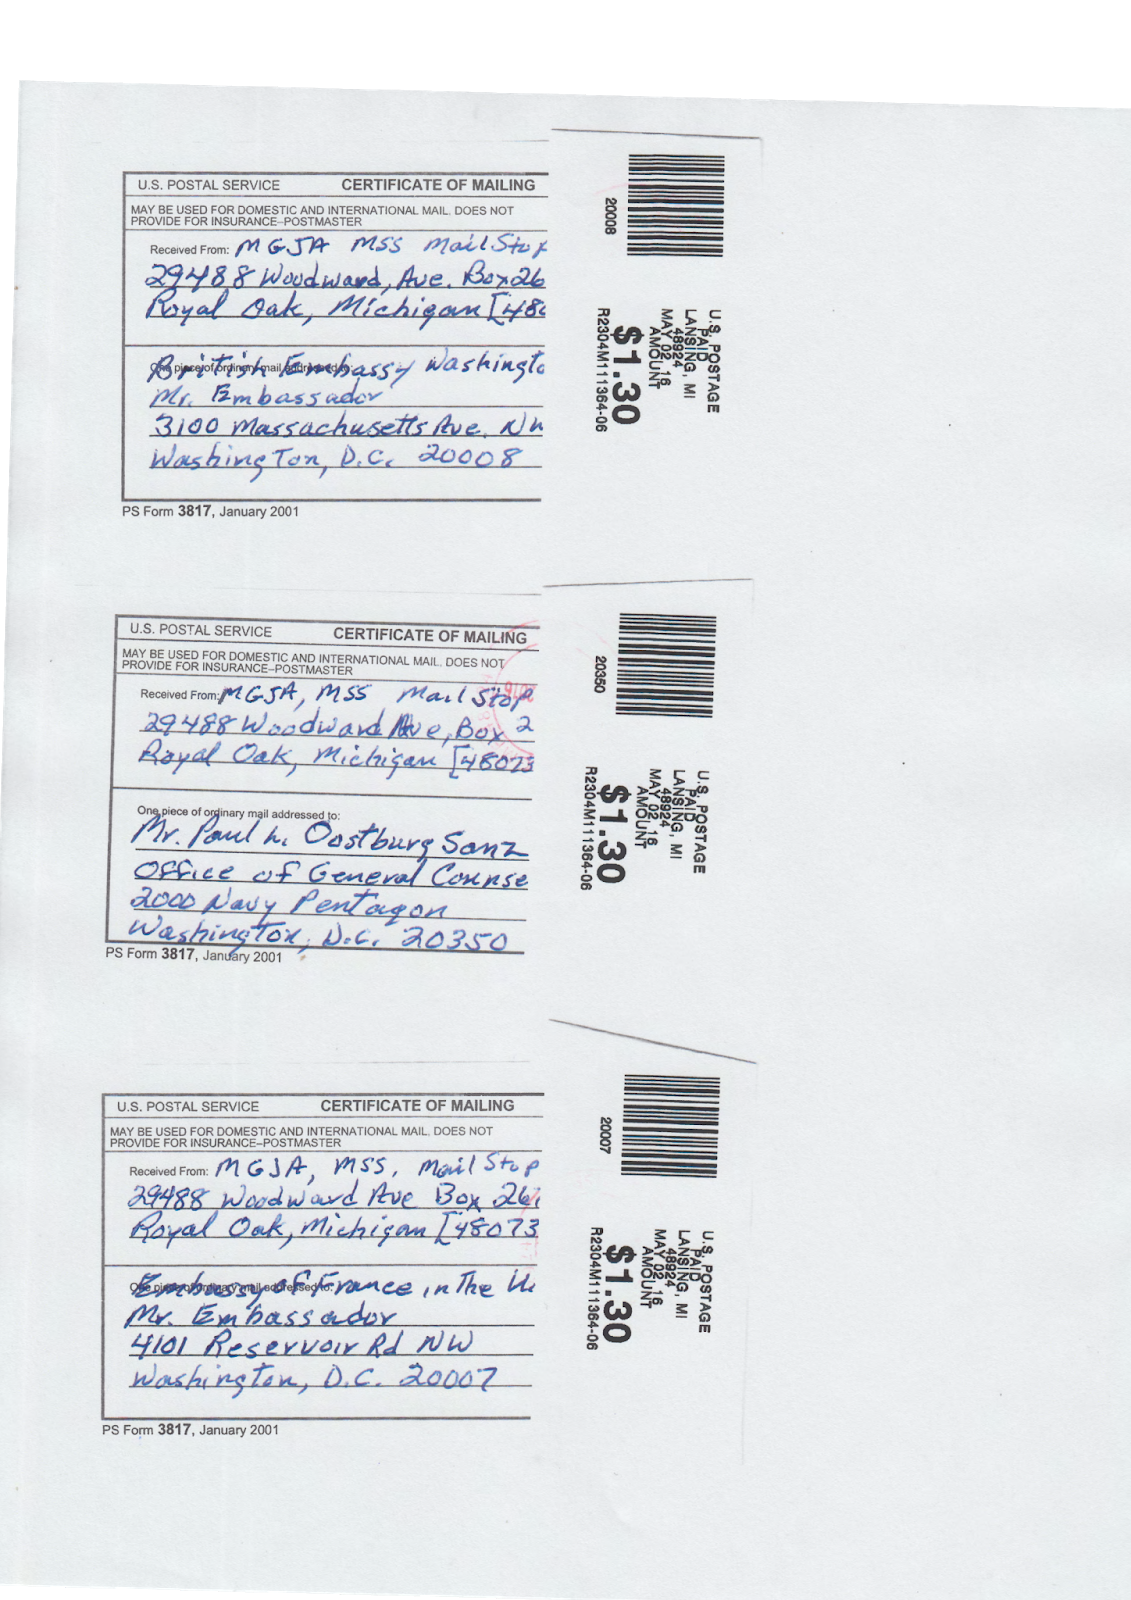 U.S. POSTAL SERVICE CERTIFICATE OF MAILING
MAY BE USED FOR DOMESTIC AND INTERNATIONAL MAIL, DOES NOT
PROVIDE FOR INSURANCE–POSTMASTER
Received From: MGJA MSS Mail Stop
29488 Woodward, Ave. Box 26
Royal Oak, Michigan [480
One piece of ordinary mail addressed to:
British Embassy Washingto
Mr. Embassador
3100 Massachusetts Ave. NW
Washington, D.C. 20008
PS Form 3817, January 2001
20008
U.S. POSTAGE
PAID
LANSING, MI
48924
MAY 02, 16
AMOUNT
$1.30
R2304M111364-06
U.S. POSTAL SERVICE CERTIFICATE OF MAILING
MAY BE USED FOR DOMESTIC AND INTERNATIONAL MAIL, DOES NOT
PROVIDE FOR INSURANCE–POSTMASTER
Received From: MGJA, MSS Mail Stop
29488 Woodward Ave, Box 2
Royal Oak, Michigan [48073
One piece of ordinary mail addressed to:
Mr. Paul L. Oostburg Sanz
Office of General Counse
2000 Navy Pentagon
Washington, D.C. 20350
PS Form 3817, January 2001
20350
U.S. POSTAGE
PAID
LANSING, MI
48924
MAY 02, 16
AMOUNT
$1.30
R2304M111364-06
U.S. POSTAL SERVICE CERTIFICATE OF MAILING
MAY BE USED FOR DOMESTIC AND INTERNATIONAL MAIL, DOES NOT
PROVIDE FOR INSURANCE–POSTMASTER
Received From: MGJA, MSS, Mail Stop
29488 Woodward Ave Box 26
Royal Oak, Michigan [48073
One piece of ordinary mail addressed to:
Embassy of France in The U
Mr. Embassador
4101 Reservoir Rd NW
Washington, D.C. 20007
PS Form 3817, January 2001
20007
U.S. POSTAGE
PAID
LANSING, MI
48924
MAY 02, 16
AMOUNT
$1.30
R2304M111364-06